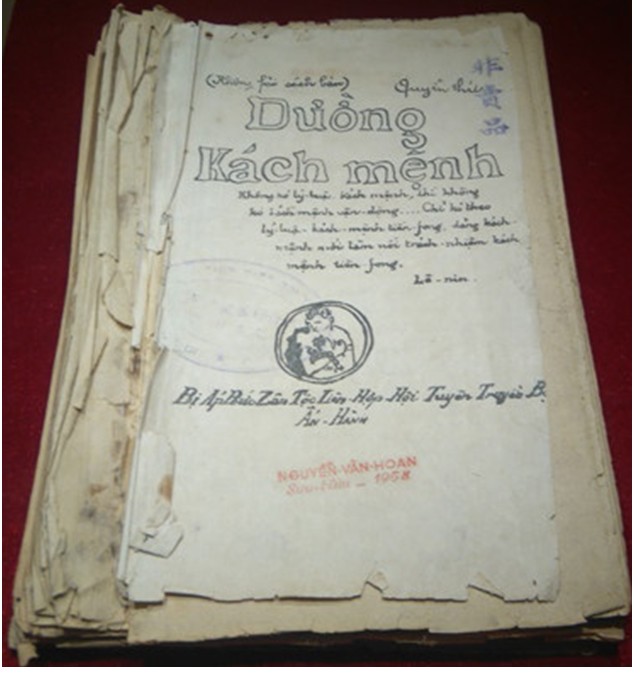 (Không fải sách bán)
Quyển thứ
非賣品
Đường
Kách mệnh
Không có lý luận kách mệnh, thì không
có kách mệnh vận-động.... Chỉ có theo
lý luận kách-mệnh tiền fong, đảng kách-
mệnh mới làm nổi trách-nhiệm kách
mệnh tiền fong.
Lê-nin.
Bị Áp Bức Zân Tộc Liên-Hợp-Hội Tuyên Truyền Bộ
Ấn-Hành
NGUYỄN-VĂN-HOAN
Sưu-tầm - 1968